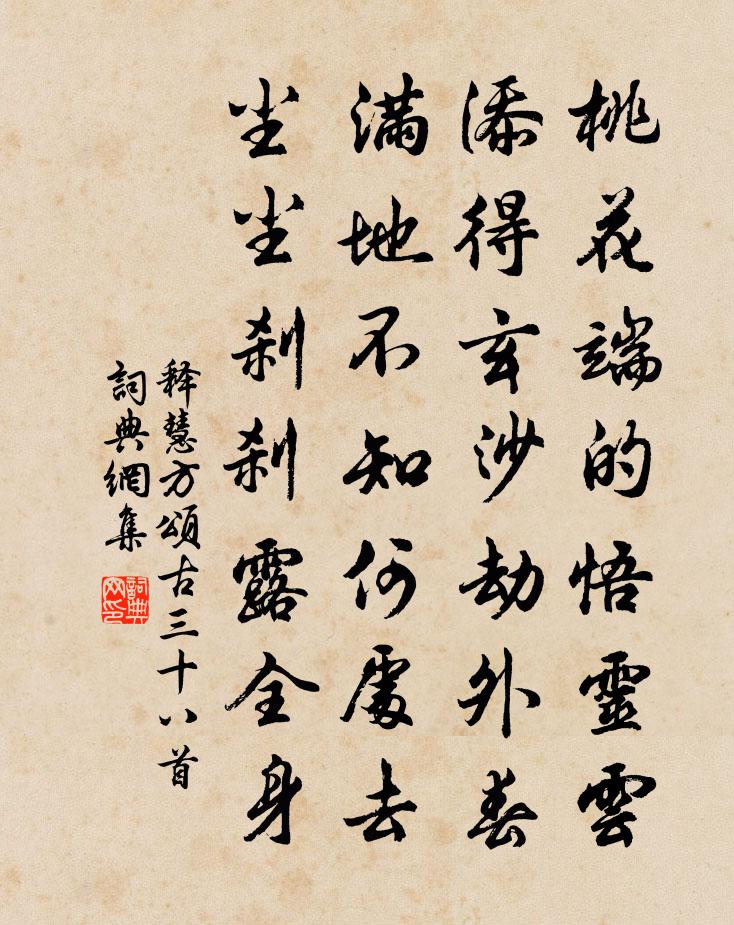 桃花端的悟靈雲
添得玄沙劫外春
滿地不知何處去
尘尘刹刹露全身
释慧方頌古三十八首
詞典網集
詞典网印